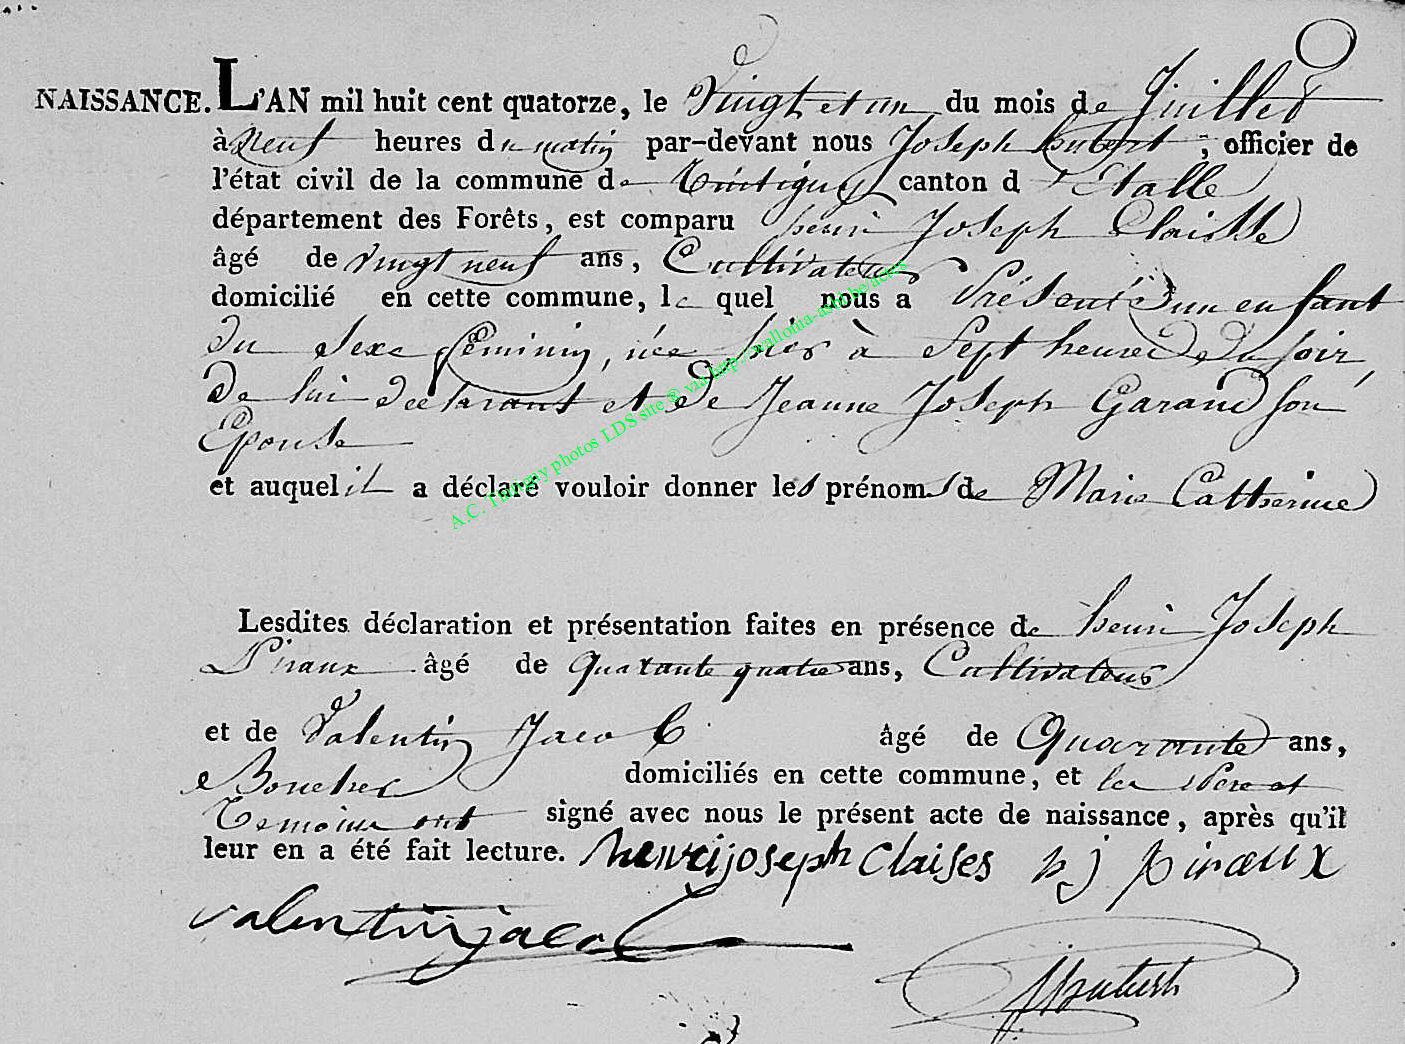 NAISSANCE. L'AN mil huit cent quatorze, le Vingt et un du mois de Juillet
à neuf heures du matin par-devant nous Joseph hubert, officier de
l'état civil de la commune de Tintigny canton d'Etalle
département des Forêts, est comparu henri Joseph Claisse
âgé de vingt neuf ans, Cultivateur
domicilié en cette commune, le quel nous a Présenté un enfant
du Sexe féminin, née hier à Sept heures du soir,
de lui declarant et de Jeanne Joseph Garand son
Epouse
et auquel il a déclaré vouloir donner les prénoms de Marie Catherine
Lesdites déclaration et présentation faites en présence de henri Joseph
Piraux âgé de Quarante quatre ans, Cultivateur
et de Valentin Jacob âgé de Quarante ans,
Boucher domiciliés en cette commune, et les Père et
Temoins ont signé avec nous le présent acte de naissance, après qu'il
leur en a été fait lecture. henrijoseph Claises hj piraux
valentin jacob
hubert
A.C. Tintigny photos LDS site @ via http://wallonia-asbl.be/actes